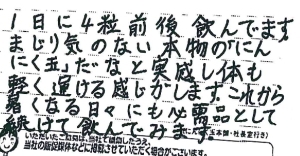 1日に4粒前後飲んでます
まじり気のない本物の「にん
にく玉」だなと実感し体も
軽く運ける感じがしますこれから
暑くなる日々にも必需品として
続けて飲んでみます
玉本舗・社長室行き)
いただいたご感想は、当社で検討したうえ、
当社の販促媒体などに掲載させていただく場合がございます。